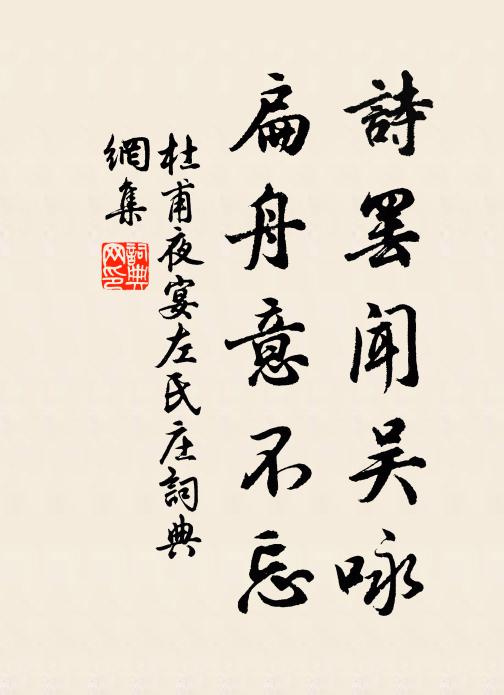 詩罢闻吴咏
扁舟意不忘
杜甫夜宴左氏庄詞典
網集
詞典網印